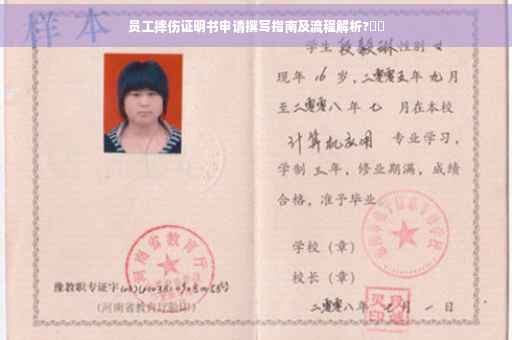 员工摔伤证明书申请撰写指南及流程解析?
样本
学生段毅琳性别女
现年16岁,二零零五年九月
至二零零八年七月在本校
计算机应用 专业学习,
学制三年,修业期满,成绩
合格,准予毕业
学校(章)
校长(章)
二零零八年七月一日
河南省教育厅
豫教职专证字
(河南省教育厅验印)